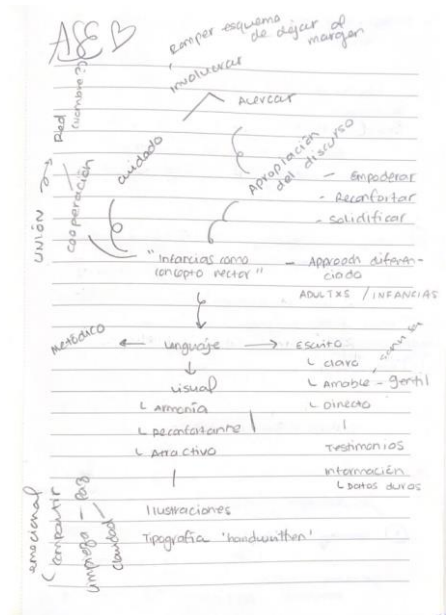 ASE
Romper esquema
de dejar al
margen
Involucrar
Acercar
Red
(nombre?)
UNIÓN
cooperación
cuidado
Apropiación
del discurso
- Empoderar
- Reconfortar
- Solidificar
"Infancias como
concepto rector"
- Approach diferen-
ciado
ADULTXS / INFANCIAS
Metódico
Lenguaje
Escrito
claro
Amable - gentil
Directo
Testimonios
Información
Datos duros
visual
Armonía
Reconfortante
Atractivo
Ilustraciones
Tipografía 'handwritten'
emocional
compartir
Limpieza - Paz
claridad